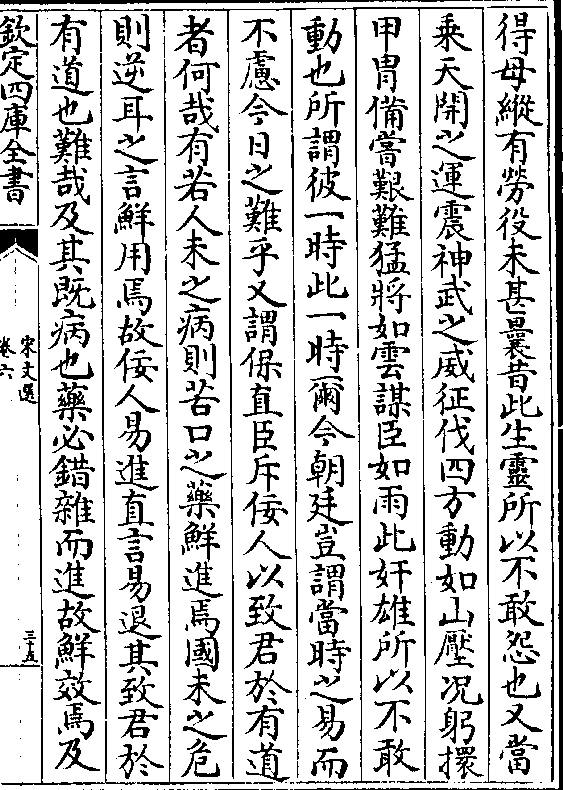 得毋縱有勞役未甚曩昔此生靈所以不敢怨也又當
乗天開之運震神武之威征伐四方動如山壓况躬擐
甲胄備嘗艱難猛將如雲謀臣如雨此奸雄所以不敢
動也所謂彼一時此一時爾今朝廷豈謂當時之易而
不慮今日之難乎又謂保直臣斥佞人以致君於有道
者何哉有若人未之病則苦口之藥鮮進焉國未之危
則逆耳之言鮮用焉故佞人易進直言易退其致君於
有道也難哉及其既病也藥必錯雜而進故鮮效焉及
欽定四庫全書
宋文選
卷六
三十五